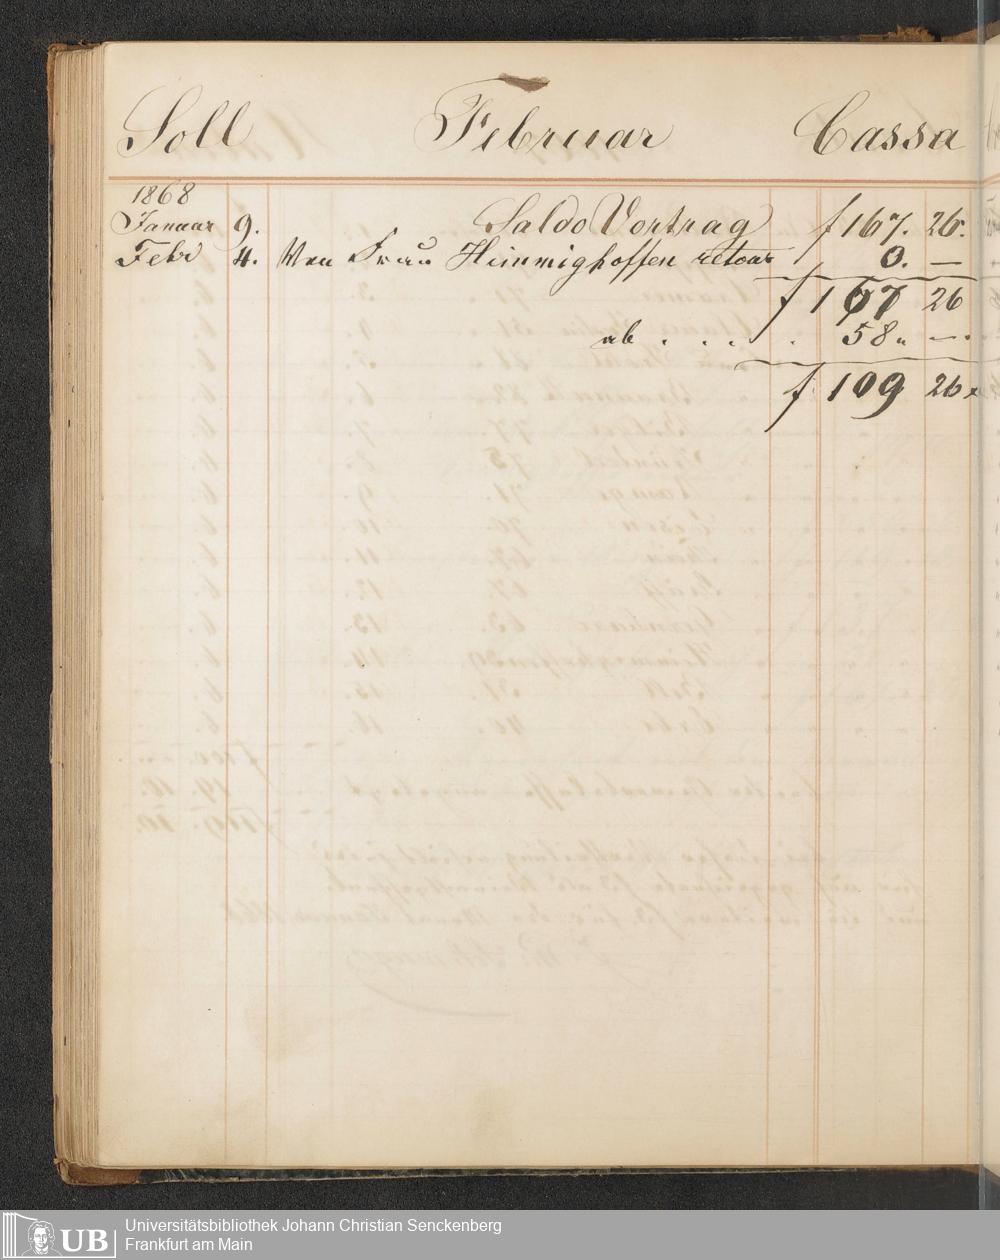 Soll Februar Cassa
1868
Januar 9. Saldo Vortrag f 167. 26.
Febr 4. Von Frau Himmighoffen retour 0. —
f 167 26
ab . . . . 58 „ —.
f 109 26 x
UB Universitätsbibliothek Johann Christian Senckenberg
Frankfurt am Main